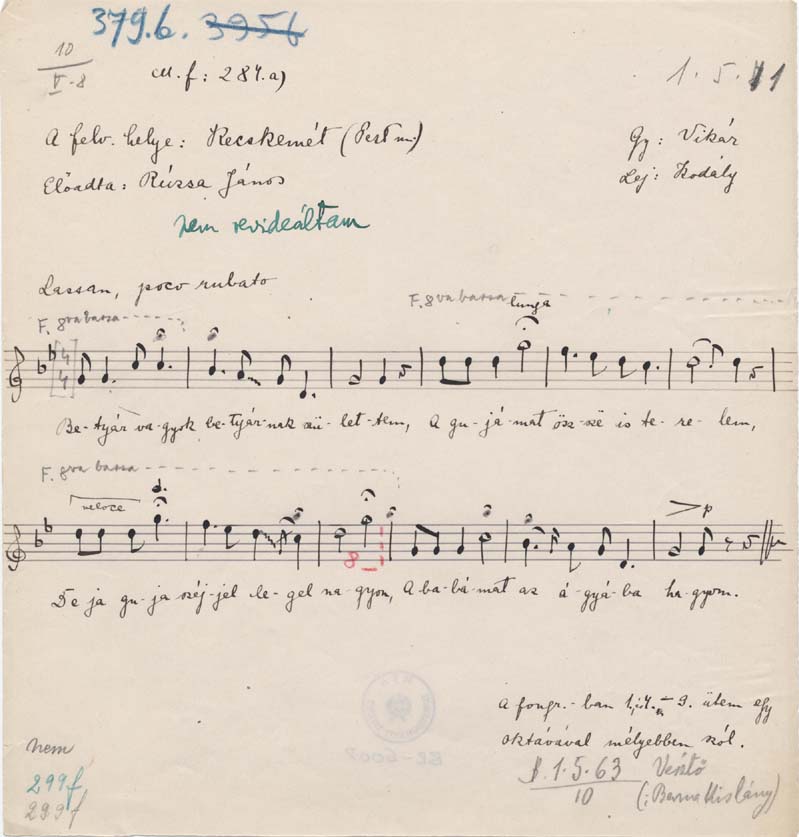 379.b. 395b
10
V-8
M.f: 284.a)
1.5.11
A felv. helye: Kecskemét (Pest m.)
Gy: Vikár
Előadta: Rúzsa János
Lej: Kodály
nem revideáltam
Lassan, poco rubato
F. 8va bassa
F. 8va bassa
lunga
4
4
Be-tyár va-gyok be-tyár-nak szü-let-tem, A gu-já-mat ösz-szë is te-re-lem,
F. 8va bassa
veloce
p
8
De ja gu-ja széj-jel le-gel na-gyon, A ba-bá-mat az á-gyá-ba ha-gyom.
A fongr.-ban 9. ütem egy
oktávával mélyebben szól.
nem
299f
299f
1.5.63
10
BR-6007